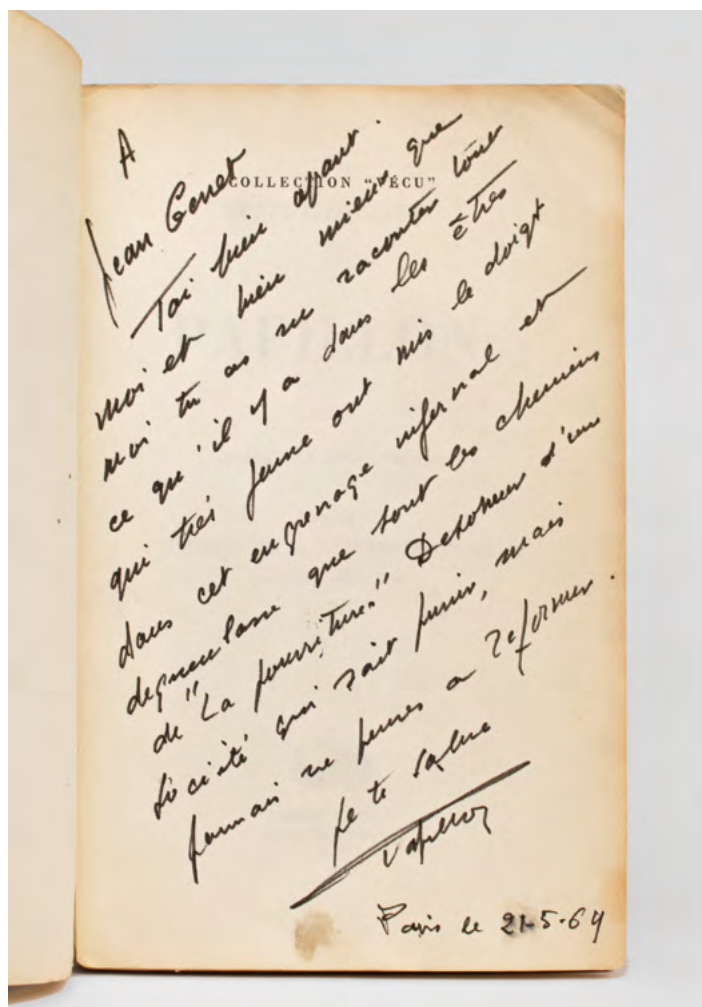 A
Jean Genet
COLLECTION "VÉCU"
Toi bien avant
moi et bien mieux que
moi tu as su raconter tout
ce qu'il y a dans les êtres
qui très jeune ont mis le doigt
dans cet engrenage infernal et
degueulasse que sont les chemins
de "La pourriture." d'une
Société qui sait punir, mais
Jamais ne penses a reformer.
Je te salue
Papillon
Paris le 21-5-69
PAPILLON